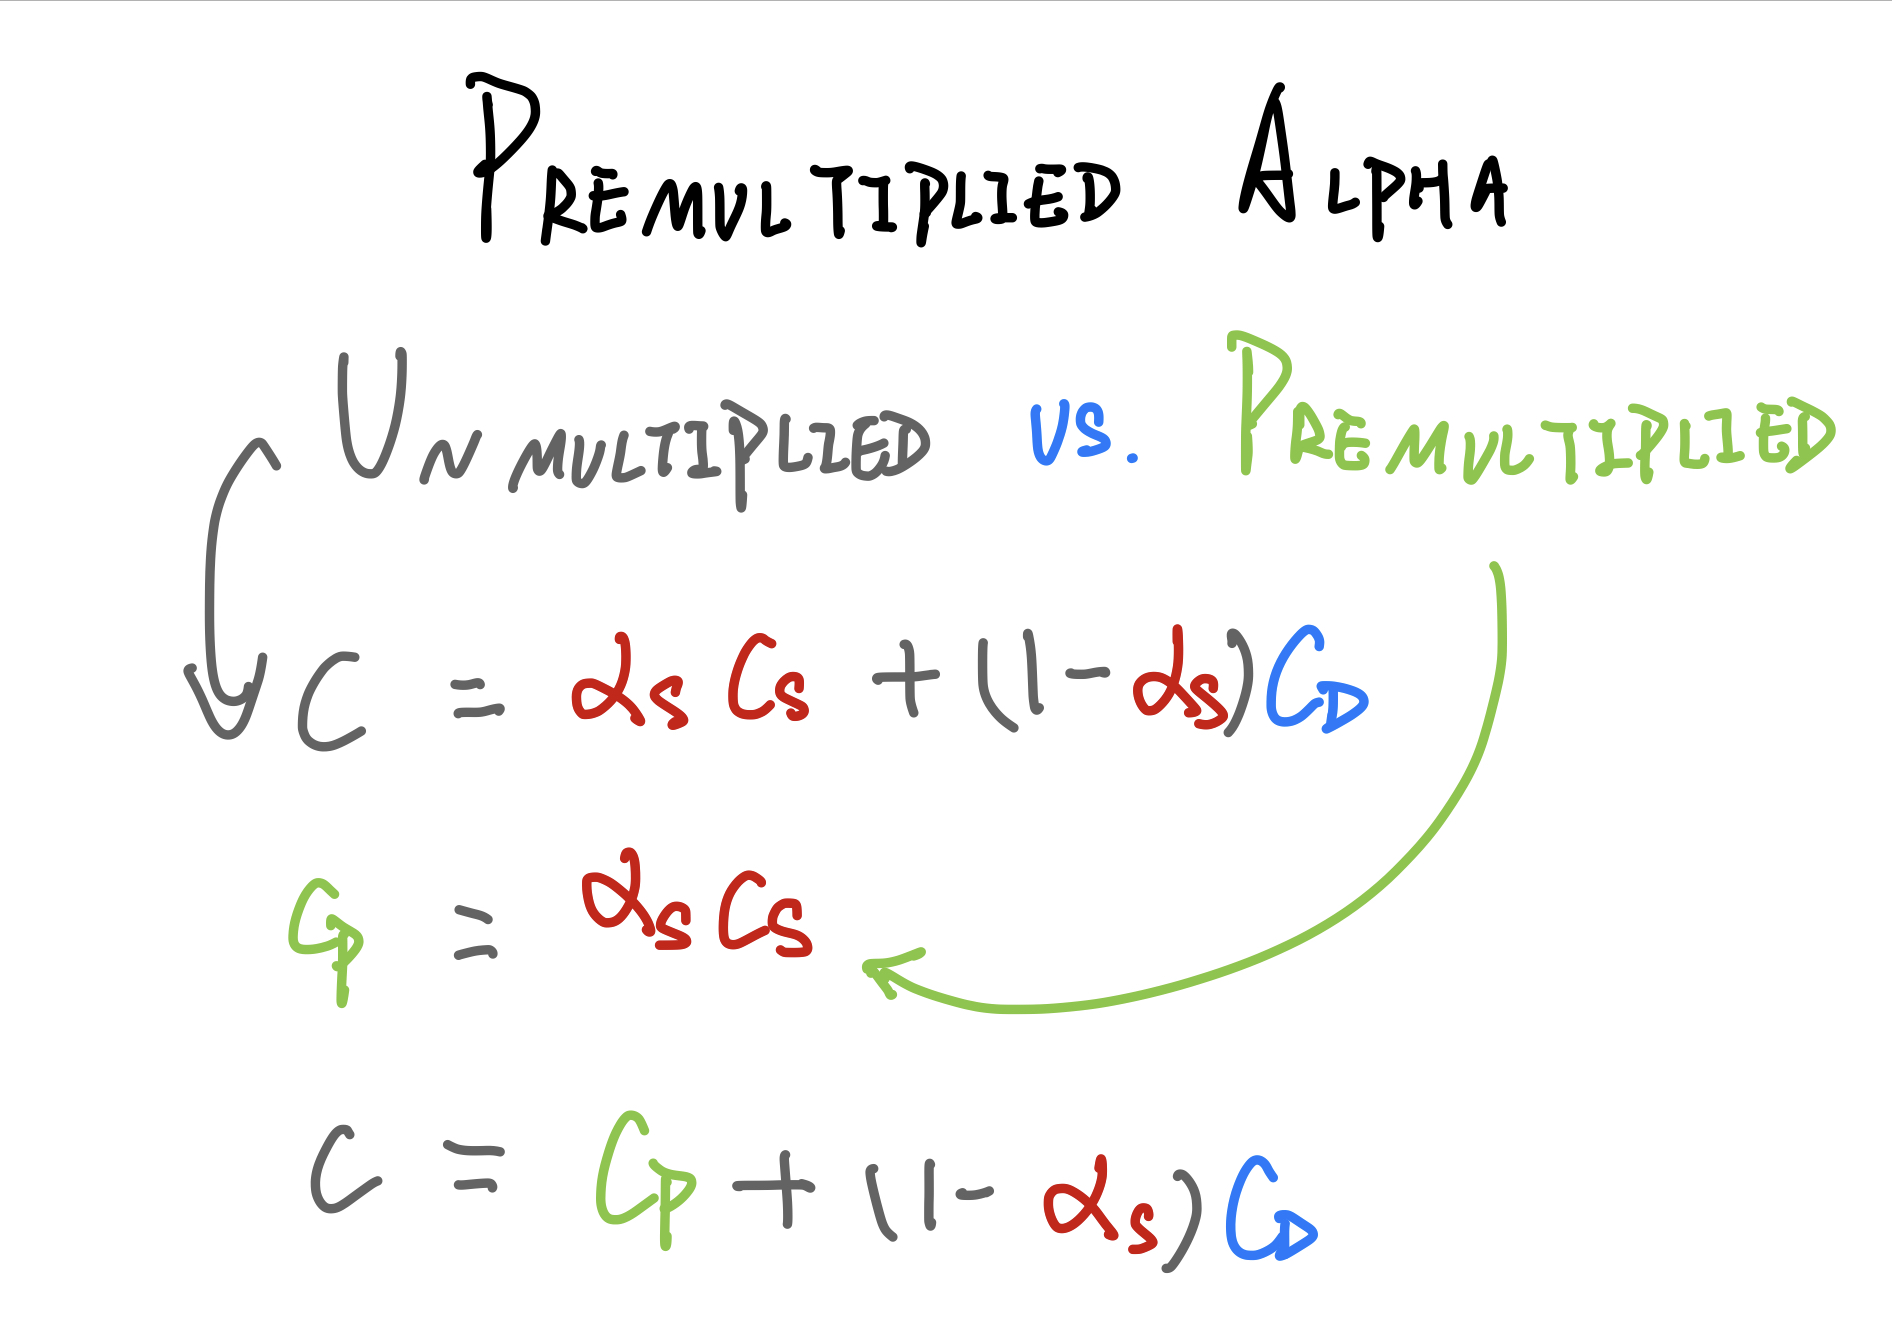 PREMULTIPLIED ALPHA
UNMULTIPLIED VS. PREMULTIPLIED
C = αs Cs + (1-αs)CD
Cp = αs Cs
C = Cp + (1-αs)CD